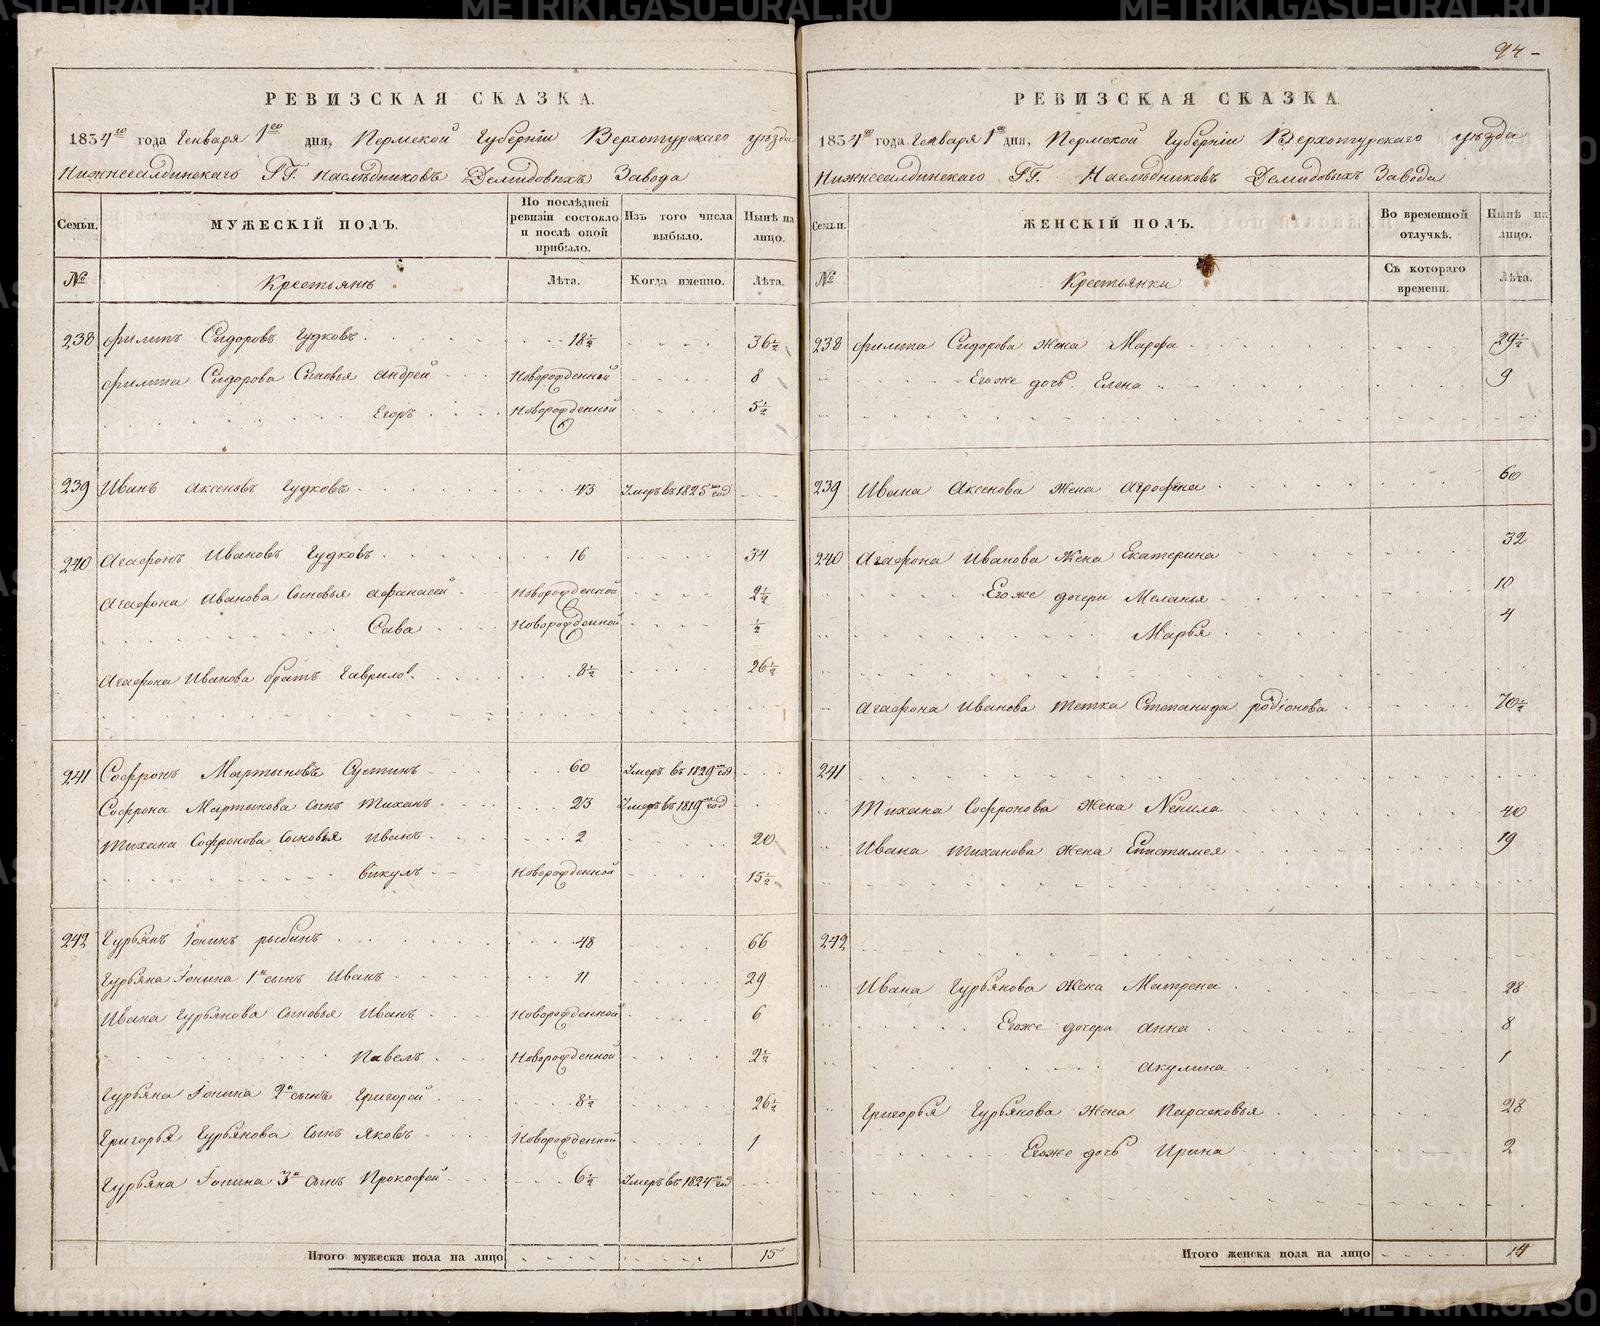 РЕВИЗСКАЯ СКАЗКА.
1834го года Генваря 1го дня, Пермской Губернiи Верхотурскаго уѣзда
Нижнесалдинскаго ГГ. Наслѣдниковъ Демидовыхъ Завода
Семьи. МУЖЕСКIЙ ПОЛЪ. По послѣдней ревизiи состояло и послѣ оной прибыло. Изъ того числа выбыло. Нынѣ на лицо.
№ Крестьянъ Лѣта. Когда именно. Лѣта.
238 Филипъ Сидоровъ Гудковъ 18½ 36½
Филипа Сидорова Сыновья Андрей Новорожденной 8
Егоръ Новорожденной 5½
239 Иванъ Аксеновъ Гудковъ 43 Умеръ въ 1825мъ год
240 Агафонъ Ивановъ Гудковъ 16 34
Агафона Иванова Сыновья Афанасей Новорожденной 2½
Сава Новорожденной ½
Агафона Иванова братъ Гаврило 8½ 26½
241 Софронъ Мартыновъ Сустинъ 60 Умеръ въ 1829мъ год
Софрона Мартынова сынъ Тиханъ 23 Умеръ въ 1819мъ год
Тихана Софронова Сыновья Иванъ 2 20
Викулъ Новорожденной 15½
242 Гурьянъ Iонинъ рыбинъ 48 66
Гурьяна Iонина 1й сынъ Иванъ 11 29
Ивана Гурьянова Сыновья Иванъ Новорожденной 6
Павелъ Новорожденной 2½
Гурьяна Iонина 2й сынъ Григорей 8½ 26½
Григорья Гурьянова Сынъ Яковъ Новорожденной 1
Гурьяна Iонина 3й сынъ Прокофей 6½ Умеръ въ 1824мъ год
Итого мужеска пола на лицо 15
94
РЕВИЗСКАЯ СКАЗКА.
1834го года Генваря 1го дня, Пермской Губернiи Верхотурскаго уѣзда
Нижнесалдинскаго ГГ. Наслѣдниковъ Демидовыхъ Завода
Семьи. ЖЕНСКIЙ ПОЛЪ. Во временной отлучкѣ. Нынѣ на лицо.
№ Крестьянки Съ котораго времени. Лѣта.
238 Филипа Сидорова жена Марфа 29½
Егоже дочь Елена 9
239 Ивана Аксенова жена Агрофена 60
240 Агафона Иванова Жена Екатерина 32
Егоже дочери Меланья 10
Марья 4
Агафона Иванова тетка Степанида родiонова 70½
241
Тихана Софронова жена Ненила 40
Ивана Тиханова жена Епистимея 19
242
Ивана Гурьянова жена Матрена 28
Егоже дочери Анна 8
Акулина 1
Григорья Гурьянова жена Парасковья 28
Егоже дочь Ирина 2
Итого женска пола на лицо 14
METRIKI.GASO-URAL.RU